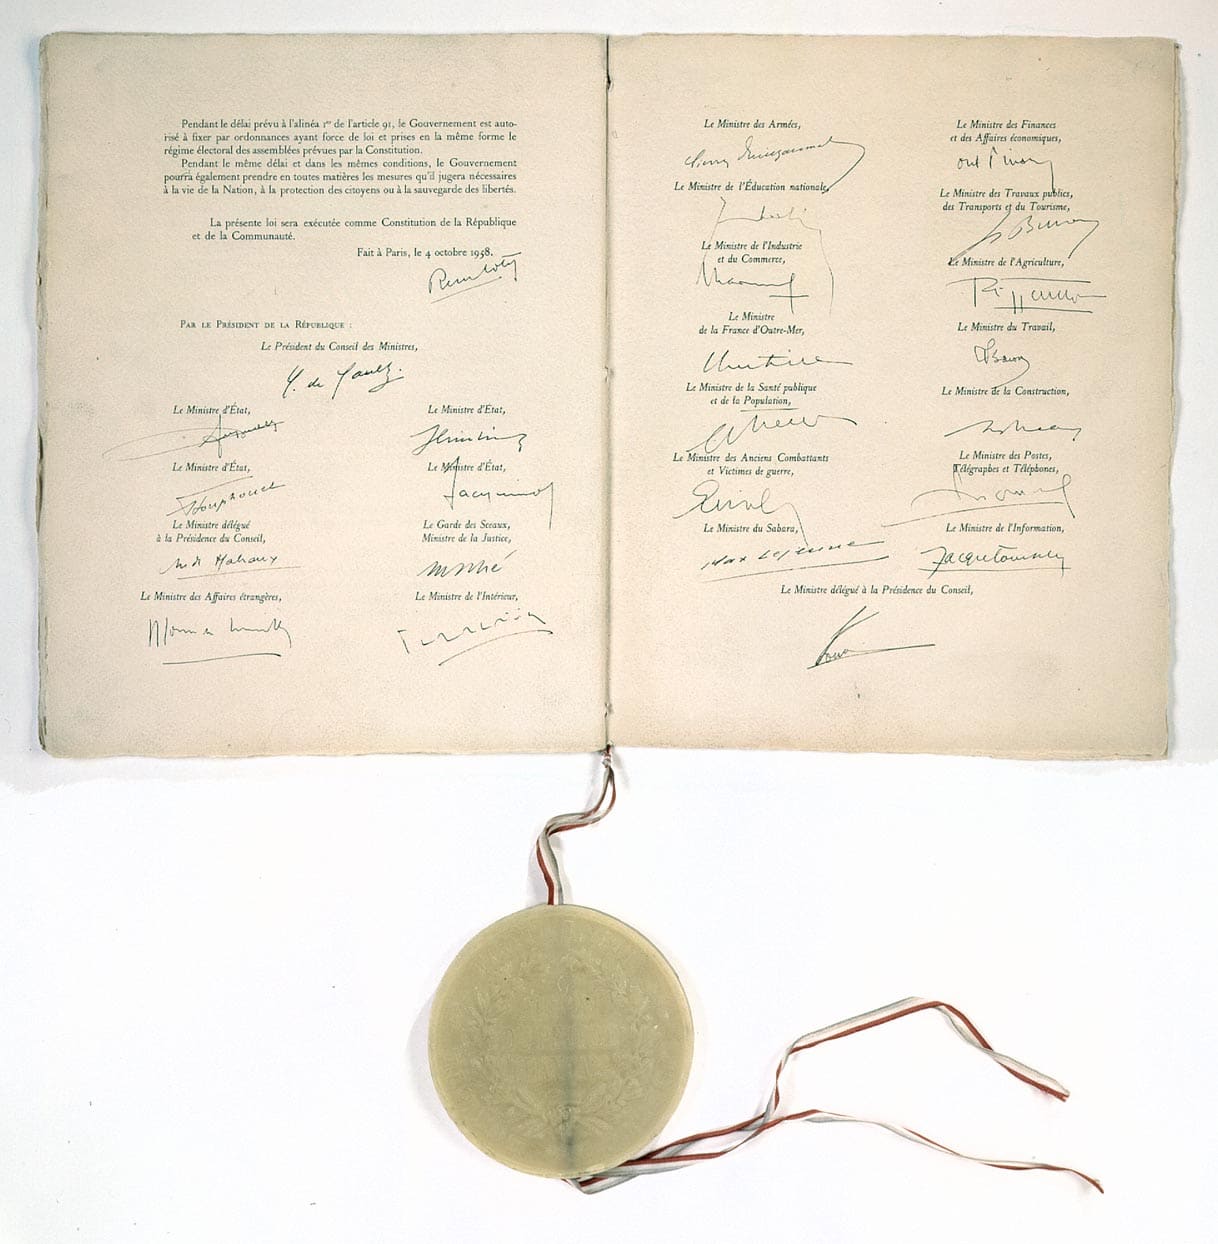 Pendant le délai prévu à l'alinéa 1er de l'article 91, le Gouvernement est auto-
risé à fixer par ordonnances ayant force de loi et prises en la même forme le
régime électoral des assemblées prévues par la Constitution.
Pendant le même délai et dans les mêmes conditions, le Gouvernement
pourra également prendre en toutes matières les mesures qu'il jugera nécessaires
à la vie de la Nation, à la protection des citoyens ou à la sauvegarde des libertés.
La présente loi sera exécutée comme Constitution de la République
et de la Communauté.
Fait à Paris, le 4 octobre 1958.
Par le Président de la République :
Le Président du Conseil des Ministres,
G. de Gaulle.
Le Ministre d'État,
Le Ministre d'État,
Le Ministre d'État,
Le Ministre d'État,
Houphouet
Jacquinot
Le Ministre délégué
à la Présidence du Conseil,
Le Garde des Sceaux,
Ministre de la Justice,
Malraux
Le Ministre des Affaires étrangères,
Le Ministre de l'Intérieur,
Le Ministre des Armées,
Le Ministre des Finances
et des Affaires économiques,
Le Ministre de l'Éducation nationale,
Le Ministre des Travaux publics,
des Transports et du Tourisme,
Le Ministre de l'Industrie
et du Commerce,
Le Ministre de l'Agriculture,
Le Ministre
de la France d'Outre-Mer,
Le Ministre du Travail,
Le Ministre de la Santé publique
et de la Population,
Le Ministre de la Construction,
Le Ministre des Anciens Combattants
et Victimes de guerre,
Le Ministre des Postes,
Télégraphes et Téléphones,
Le Ministre du Sahara,
Le Ministre de l'Information,
Max Lejeune
Le Ministre délégué à la Présidence du Conseil,